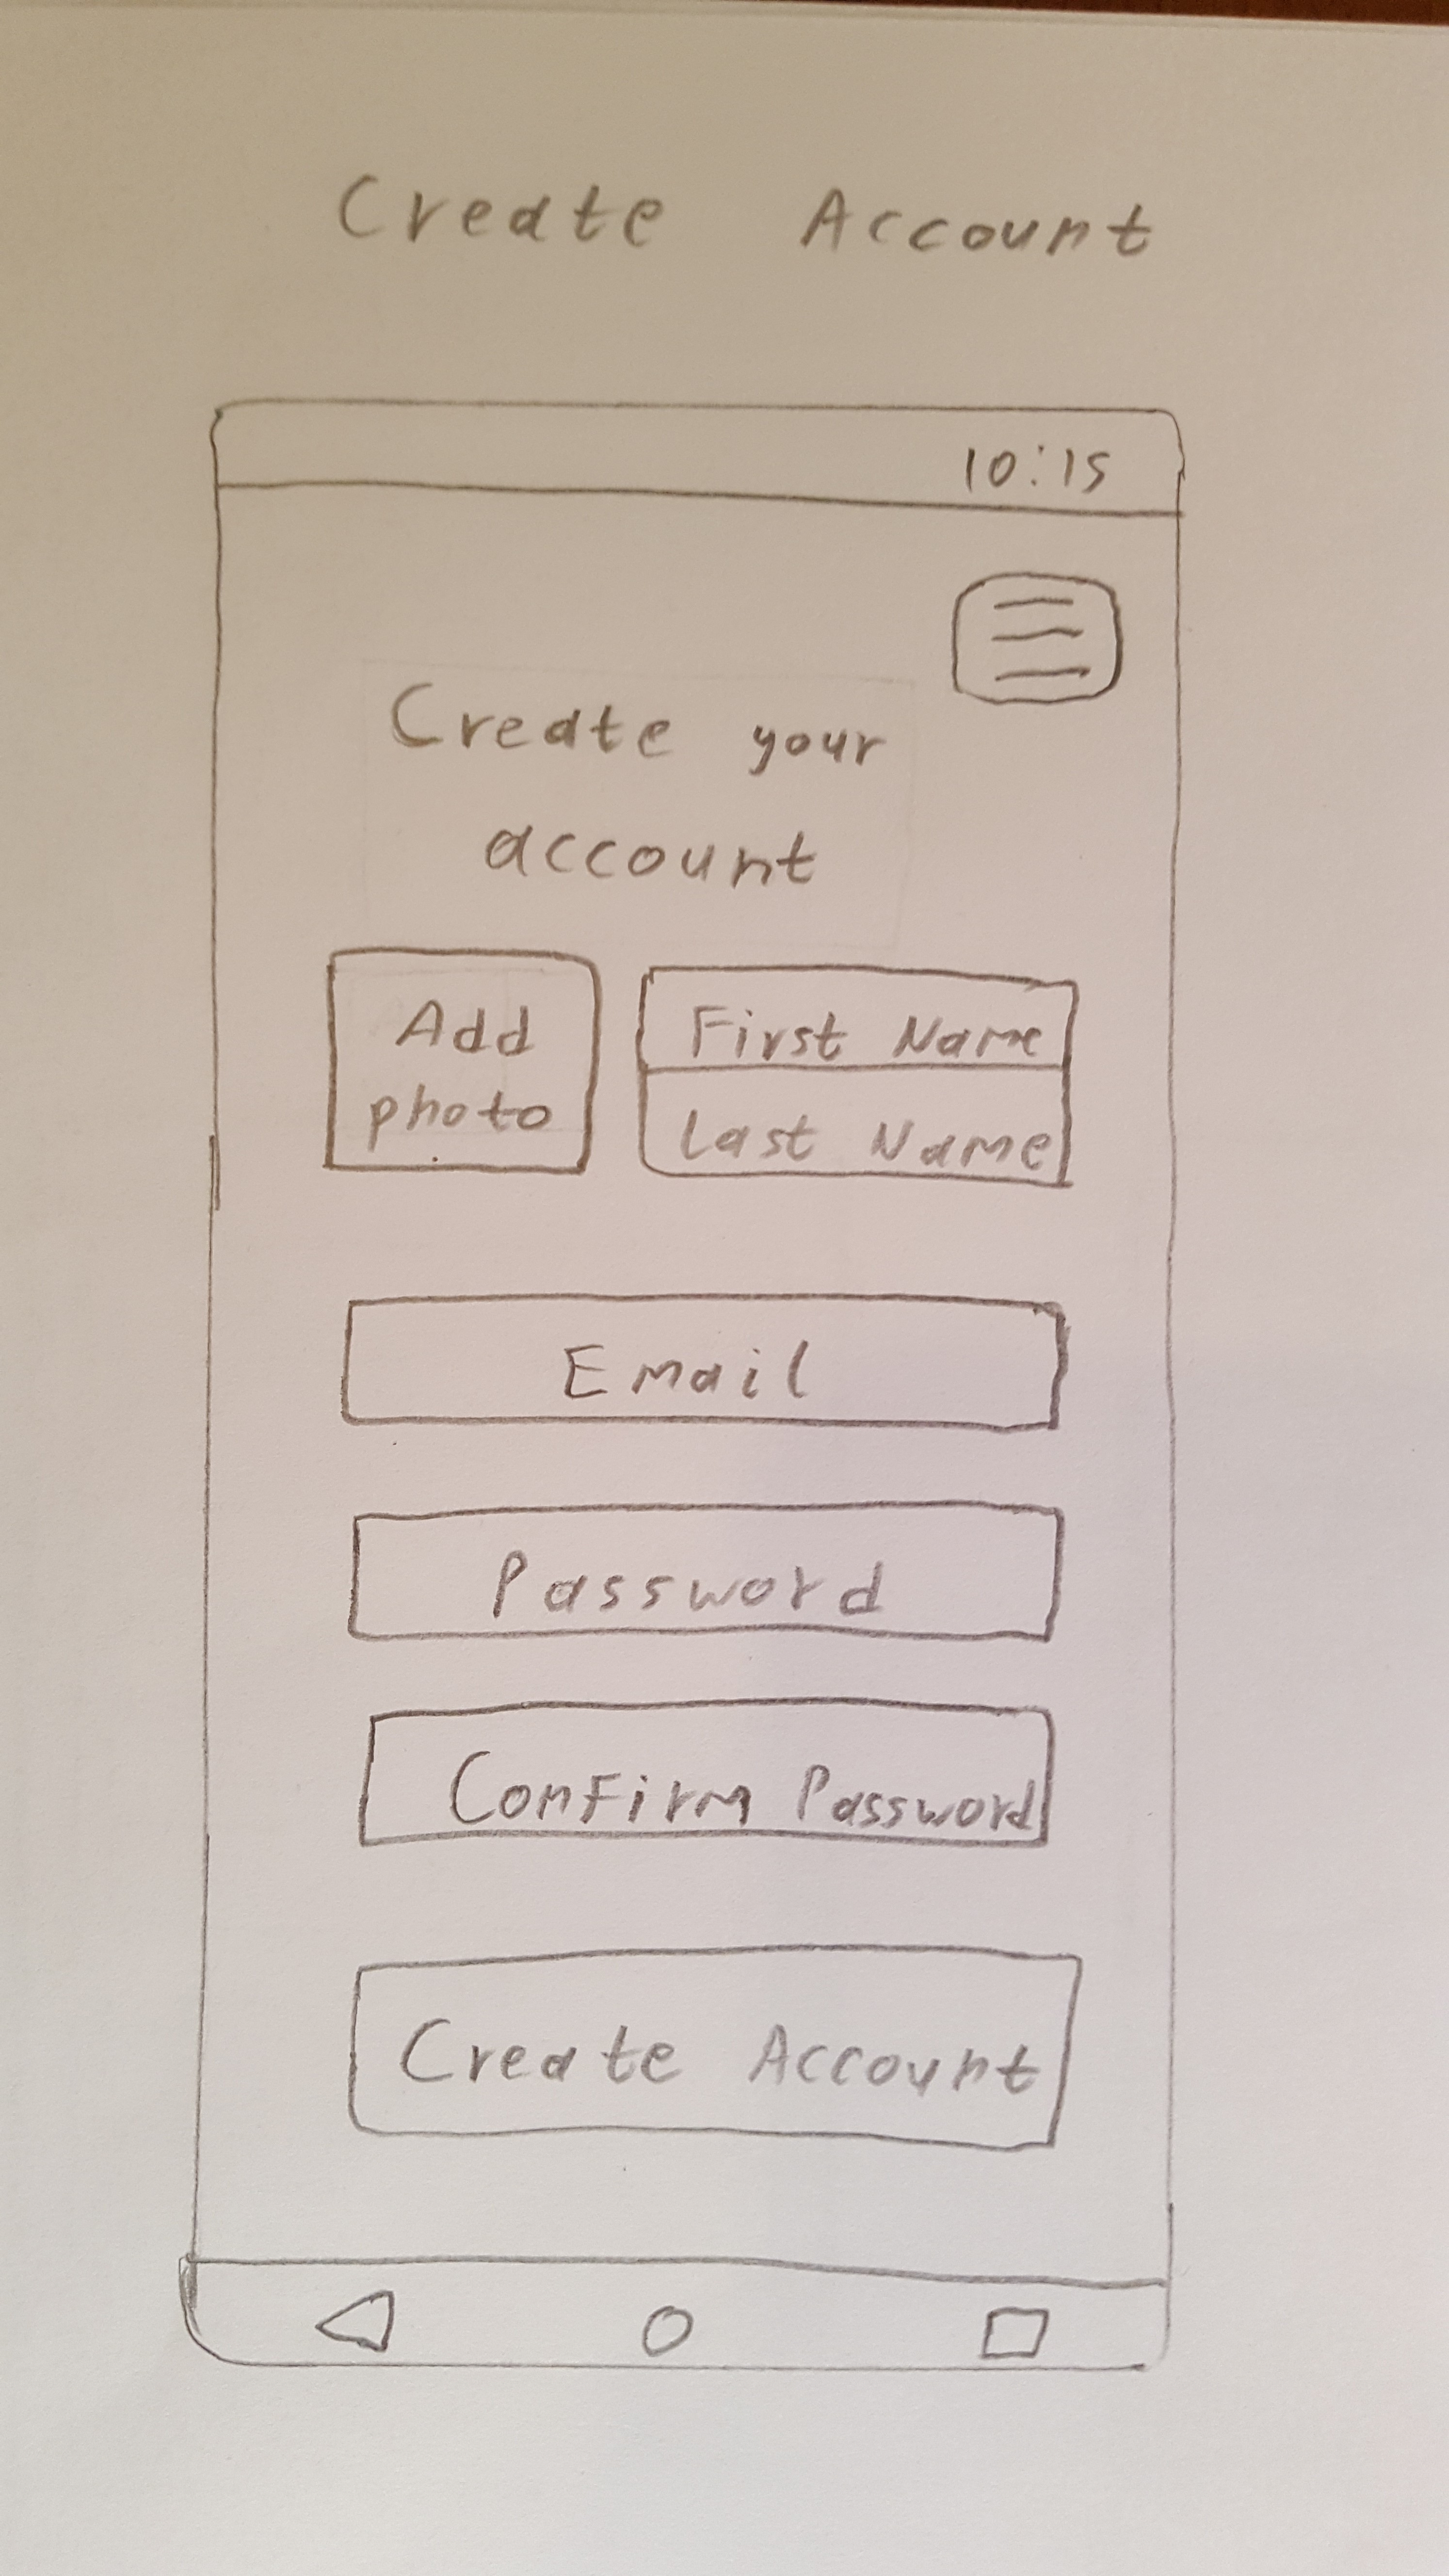 Create Account
10:15
Create your
account
Add
photo
First Name
Last Name
Email
Password
Confirm Password
Create Account